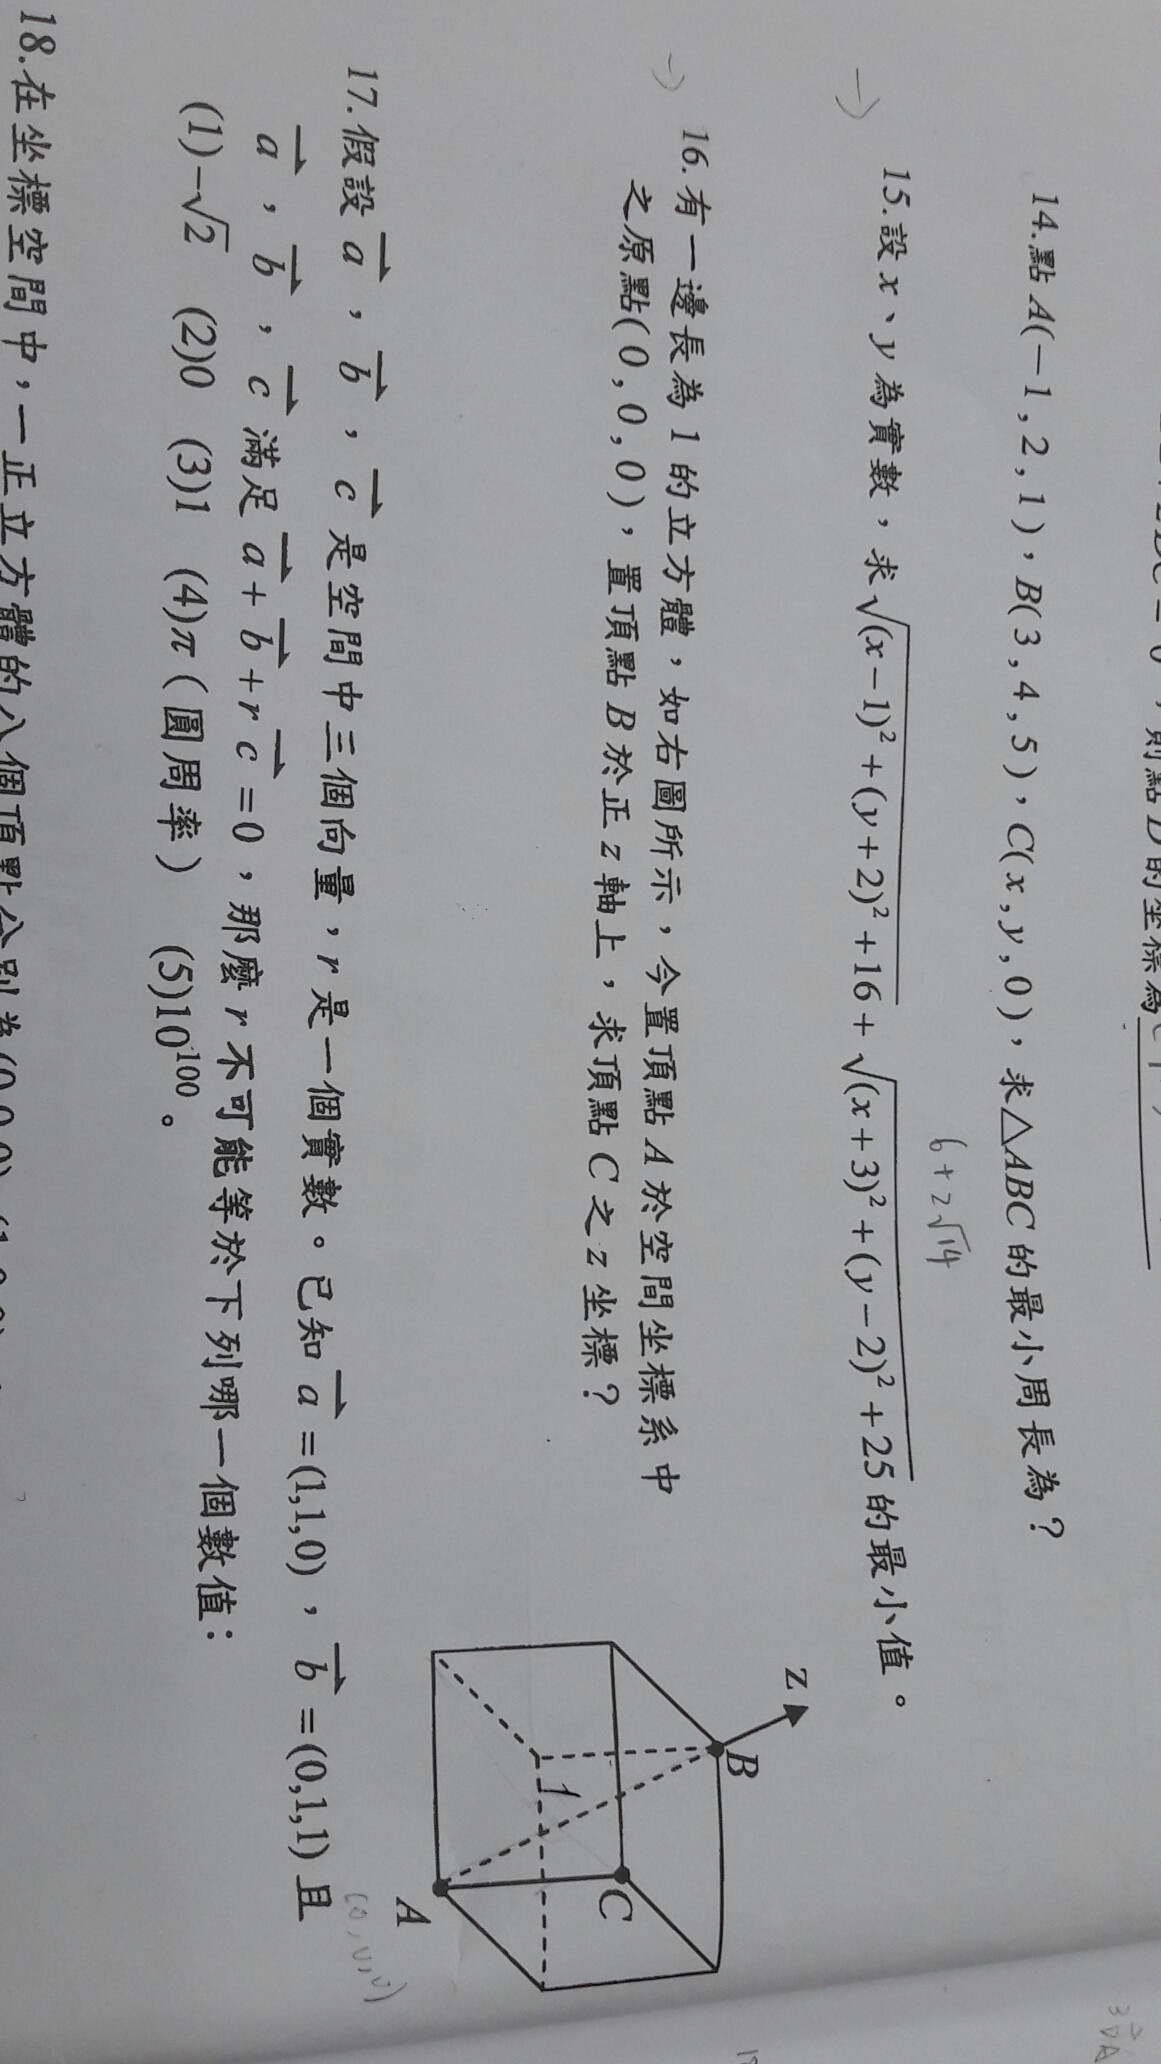 則點D的坐標為
14.點 A(-1,2,1),B(3,4,5),C(x,y,0),求△ABC 的最小周長為?
6+2√14
15.設 x、y 為實數,求√(x-1)²+(y+2)²+16+√(x+3)²+(y-2)²+25 的最小值。
16.有一邊長為 1 的立方體,如右圖所示,今置頂點 A 於空間坐標系中
之原點(0,0,0),置頂點 B 於正 z 軸上,求頂點 C 之 z 坐標?
z
B
1
C
A
(0,0,0)
17.假設 a⃗,b⃗,c⃗ 是空間中三個向量,r 是一個實數。已知 a⃗=(1,1,0),b⃗=(0,1,1) 且
a⃗,b⃗,c⃗ 滿足 a⃗+b⃗+r c⃗=0,那麼 r 不可能等於下列哪一個數值:
(1)-√2 (2)0 (3)1 (4)π(圓周率) (5)10¹⁰⁰。
18.在坐標空間中,一正立方體的八個頂點分別為(0,0,0)